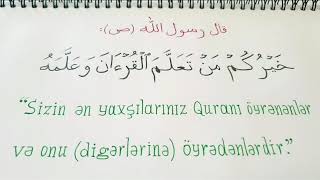 قال رسول الله (ص):
خَيْرُكُمْ مَنْ تَعَلَّمَ الْقُرْءَانَ وَعَلَّمَهُ
“Sizin ən yaxşılarınız Quranı öyrənənlər
və onu (digərlərinə) öyrədənlərdir.”